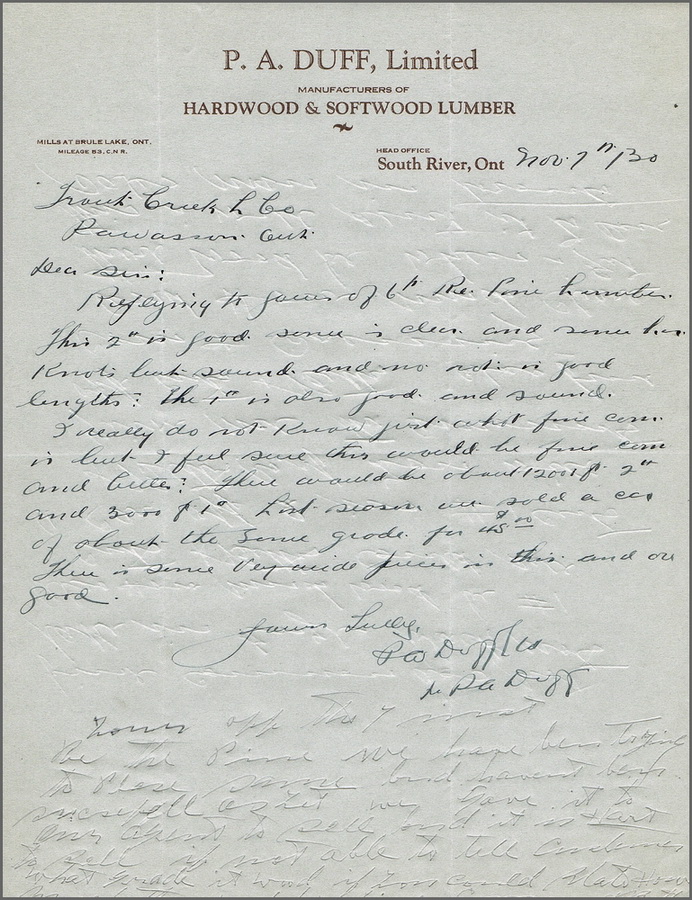 P. A. DUFF, Limited
MANUFACTURERS OF
HARDWOOD & SOFTWOOD LUMBER
MILLS AT BRULE LAKE, ONT.
MILEAGE 53, C.N R.
HEAD OFFICE
South River, Ont Nov. 7th/30
Trout Creek L Co
Ont.
Dear Sir:
Replying to yours of 6th Re. Pine Lumber.
This 2" is good some is clear and some has
Knots but sound and no rot: is good
lengths: The 1" is also good and sound.
I really do not Know just what fine com.
is but I feel sure this would be fine com
and better: There would be about 1200 ft 2"
and 3000 ft 1" Last season we sold a car
of about the same grade for $45 00
There is some very wide pieces in this and are
good.
Yours Truly,
P A Duff Ltd
P A Duff
Yours of the 7 inst
Re the Pine We have ben trying
to Place same but havent ben
sucesfull as yet we gave it to
our agent to sell and it is Hart
to sell if not able to tell Customers
What Grade it wood if you could State How